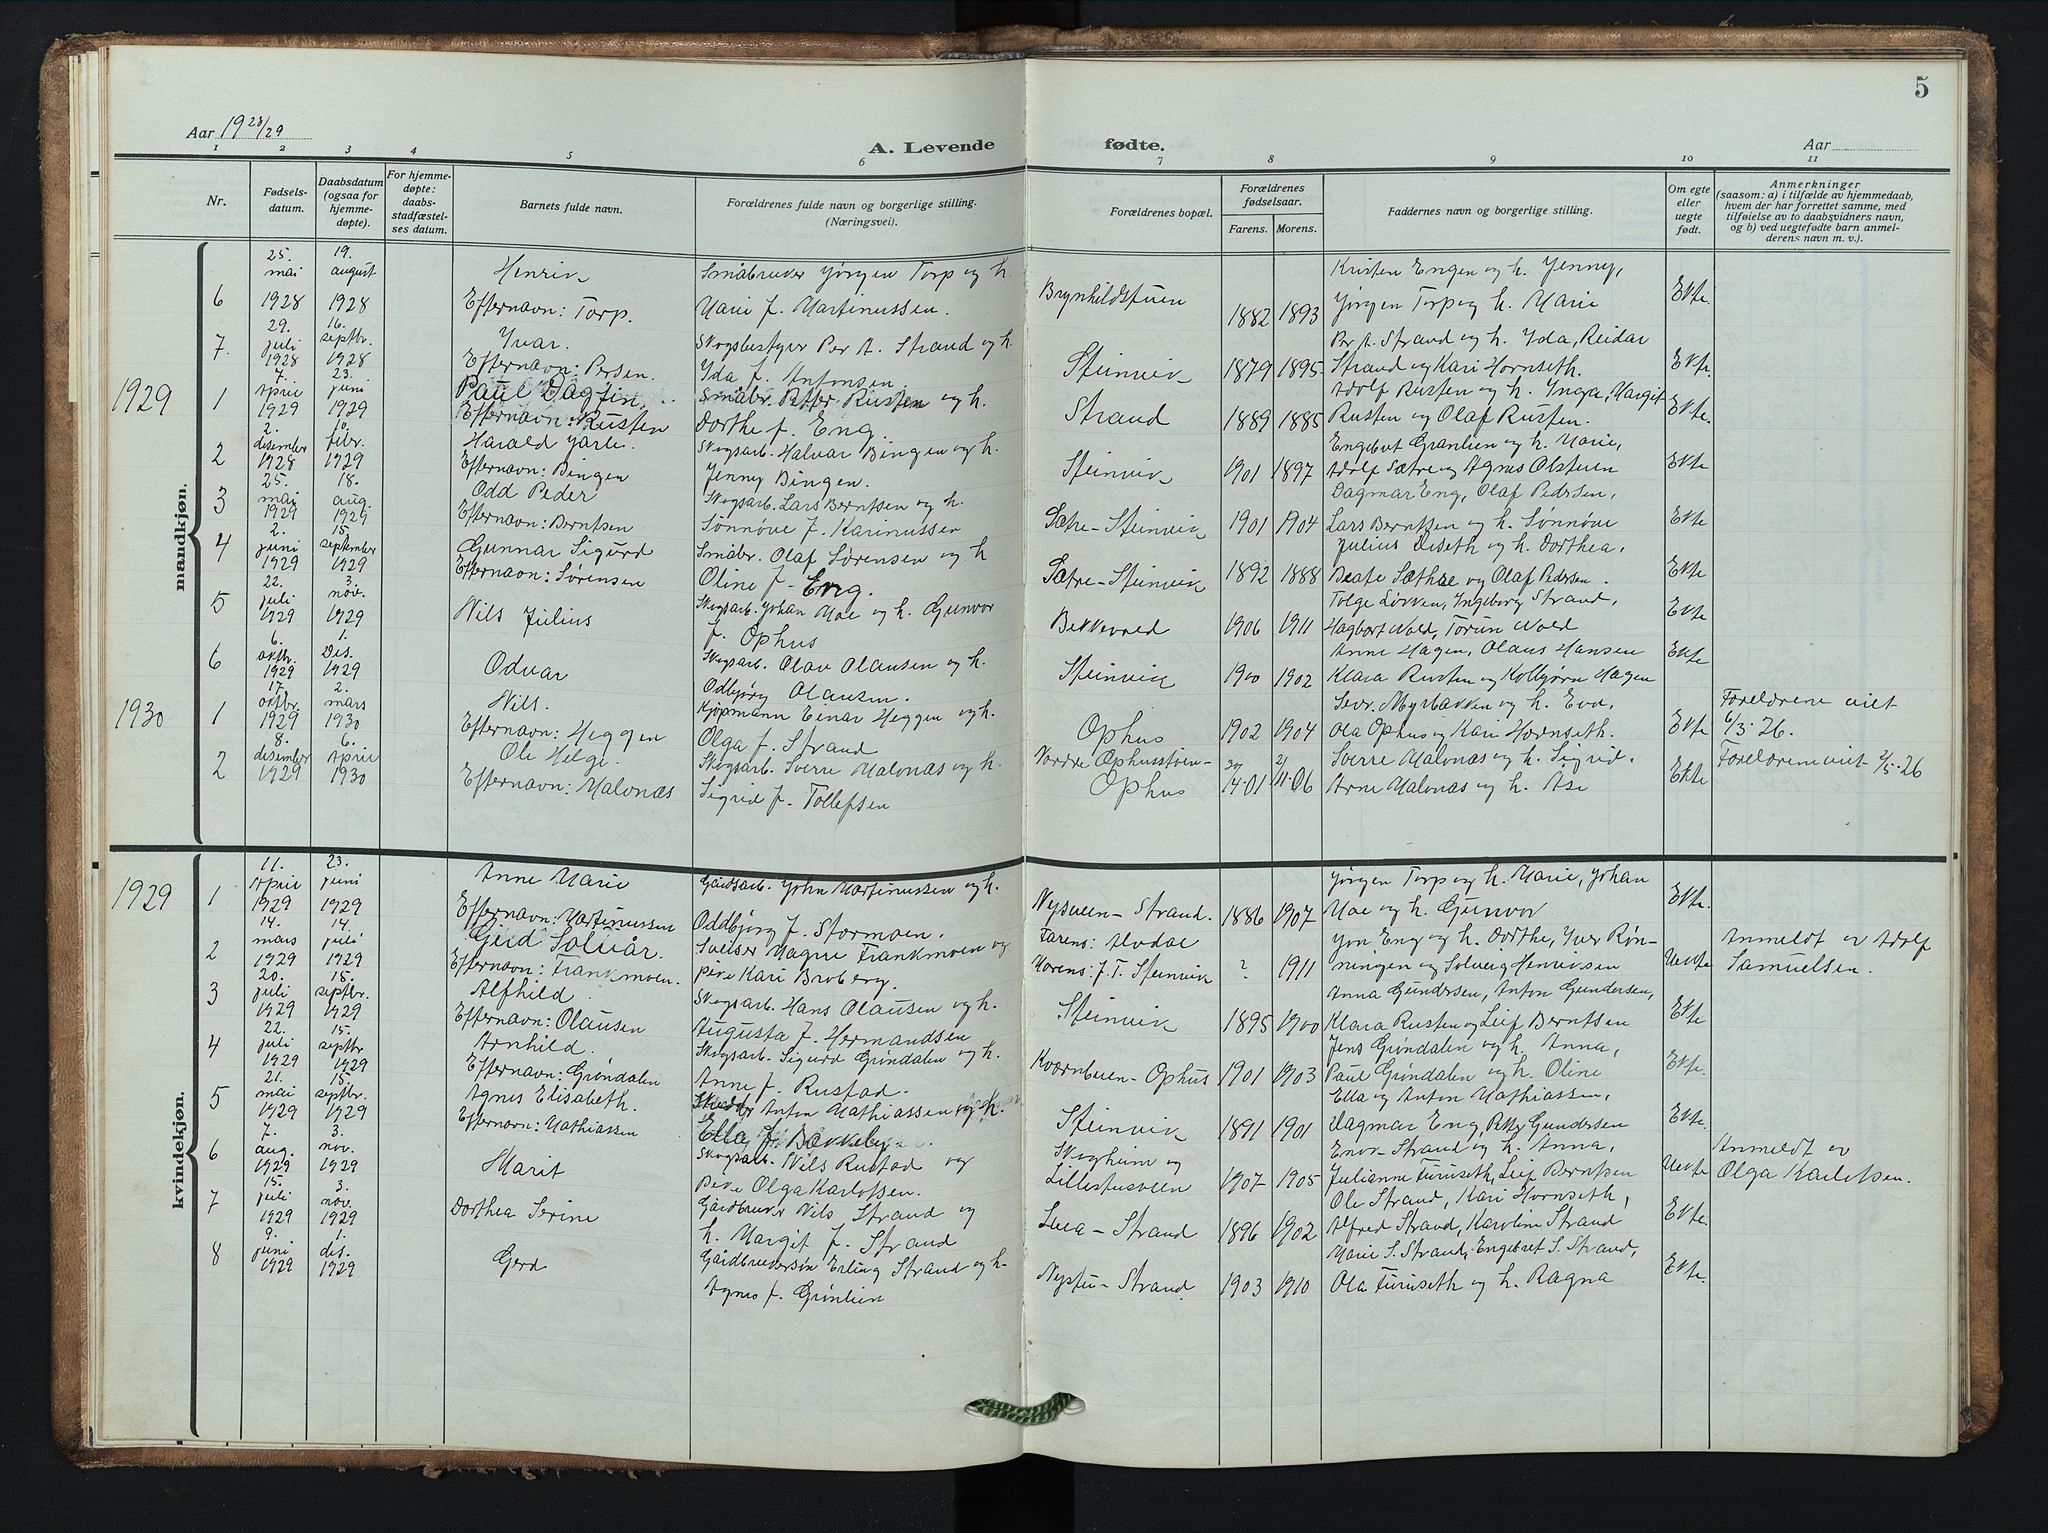 5
Aar 1928/29
A. Levende fødte.
Aar
1 2 3 4 5 6 7 8 9 10 11
Nr.
Fødsels-
datum.
Daabsdatum
(ogsaa for
hjemme-
døpte).
For hjemme-
døpte:
daabs-
stadfæstel-
ses datum.
Barnets fulde navn.
Forældrenes fulde navn og borgerlige stilling.
(Næringsvei).
Forældrenes bopæl.
Forældrenes
fødselsaar.
Farens. Morens.
Faddernes navn og borgerlige stilling.
Om egte
eller
uegte
født.
Anmerkninger
(saasom: a) i tilfælde av hjemmedaab,
hvem der har forrettet samme, med
tilføielse av to daabsvidners navn,
og b) ved uegtefødte barn anmel-
derens navn m. v.).
mandkjøn.
6 25. mai 1928 19. august 1928 Henrik
Efternavn: Torp.
Småbruker Jørgen Torp og h.
Marie f. Martinussen.
Brynhildstuen 1882 1893
Kristen Engen og h. Jenny,
Jørgen Torp og h. Marie
Ekte.
7. 29. juli 1928 16. septbr. 1928 Ivar.
Efternavn: Persen.
Skogsbestyrer Per A. Strand og h.
Yda f. Antonsen.
Steinvik 1879 1895
Per A. Strand og h. Yda, Reidar
Strand og Kari Hornseth.
Ekte.
1929 1 7. April 1929 23. juni 1929 Paul Dagfin.
Efternavn: Rusten
Småbr. Petter Rusten og h.
Dorthe f. Eng.
Strand 1889 1885
Adolf Rusten og h. Ynga, Margit
Rusten og Olaf Rusten.
Ekte.
2 2. desember 1928 10. febr. 1929 Harald Jarle.
Efternavn: Bingen
Skogsarb. Halvar Bingen og h.
Jenny Bingen.
Steinvik 1901 1897
Engebret Granlien og h. Marie,
Adolf Sætre og Agnes Olstuen
Ekte
3 25. mai 1929 18. aug. 1929 Odd Peder
Efternavn: Berntsen
Skogsarb. Lars Berntsen og h.
Sønnøve f. Karinussen
Sætre-Steinvik 1901 1904
Dagmar Eng, Olaf Pedersen,
Lars Berntsen og h. Sønnøve
Ekte
4 2. juni 1929 15. september 1929 Gunnar Sigurd
Efternavn: Sørensen
Småbr. Olaf Sørensen og h
Oline f. Eng.
Sætre-Steinvik 1892 1888
Julius Diseth og h. Dorthea,
Beate Sæthre og Olaf Pedersen.
Ekte
5 22. juli 1929 3. nov. 1929 Nils Julius
Skogsarb. Johan Moe og h. Gunvor
f. Ophus
Bekkevold 1906 1911
Tolge Løkken, Ingeborg Strand,
Hagbart Wold, Torun Wold
Ekte
6 6. oktbr. 1929 1. Des. 1929 Odvar
Skogsarb. Olav Olausen og h.
Odbjørg Olausen.
Steinvik 1900 1902
Anne Hagen, Olaus Hansen
Klara Rusten og Kolbjørn Hagen
Ekte
1930 1 17. oktbr. 1929 2. mars 1930 Nils.
Efternavn: Heggen
Kjøpmann Einar Heggen og h.
Olga f. Strand
Ophus 1902 1904
Sevr. Myrbakken og h. Eva,
Ola Ophus og Kari Hornseth.
Ekte
Foreldrene viet
6/3·26.
2 8. desember 1929 6. April 1930 Ole Helge.
Efternavn: Malonæs
Skogsarb. Sverre Malonæs og h.
Sigrid f. Tollefsen
Nordre Ophusstuen-
Ophus
Sverre Malonæs og h. Sigrid.
Arne Malonæs og h. Åse
Ekte
Foreldrene viet 2/5·26
kvindekjøn.
1929 1 11. April 1929 23. juni 1929 Anne Marie
Efternavn: Martinussen
Gårdsarb. John Martinussen og h.
Oddbjørg f. Stormoen.
Nysveen-Strand. 1886 1907
Jørgen Torp og h. Marie, Johan
Moe og h. Gunvor
Ekte.
2 14. mars 1929 14. juli 1929 Gerd Solvår.
Efternavn: Frankmoen.
Sveiser Magne Frankmoen og
pike Kari Broberg.
Farens: Alvdal
Morens: f. T. Steinvik ? 1911
Jon Eng og h. Dorthe, Iver Røn-
ningen og Solveig Henriksen
Uekte
Anmeldt av Adolf
Samuelsen.
3 20. juli 1929 15. septbr. 1929 Alfhild.
Efternavn: Olausen
Skogsarb. Hans Olausen og h.
Augusta f. Hermandsen
Steinvik 1895 1900
Anna Gundersen, Anton Gundersen,
Klara Rusten og Leif Berntsen
Ekte
4 22. juli 1929 15. septbr 1929 Arnhild.
Efternavn: Grøndalen
Skogsarb. Sigurd Grøndalen og h.
Anne f. Rustad.
Kværnbuen-Ophus 1901 1903
Jens Grøndalen og h. Anna,
Paul Grøndalen og h. Oline
Ekte.
5 21. mai 1929 15. septbr. 1929 Agnes Elisabeth.
Efternavn: Mathiassen
Anton Mathiassen og h.
Ella f. Bakkeby
Steinvik 1891 1901
Ella og Anton Mathiassen,
Dagmar Eng, Petter Gundersen
Ekte.
6 7. aug. 1929 3. nov. 1929 Marit
Skogsarb. Nils Rustad og
pike Olga Karlofsen.
Skogheim og
Lillestusveen 1907 1905
Enor Strand og h. Anna,
Julianne Furuseth, Leif Berntsen
Uekte
Anmeldt av
Olga Karlofsen.
7 15. juli 1929 3. nov. 1929 Dorthea Serine
Gårdbruker Nils Strand og
h. Margit f. Strand
Luea-Strand 1896 1902
Ole Strand, Kari Hornseth,
Alfred Strand, Karoline Strand
Ekte.
8 9. juni 1929 1. des. 1929 Gerd
Gårdbrukersøn Erling Strand og h.
Agnes f. Grønlien
Nystu-Strand 1903 1910
Marie S. Strand, Engebret S. Strand,
Ola Furuseth og h. Ragna
Ekte.